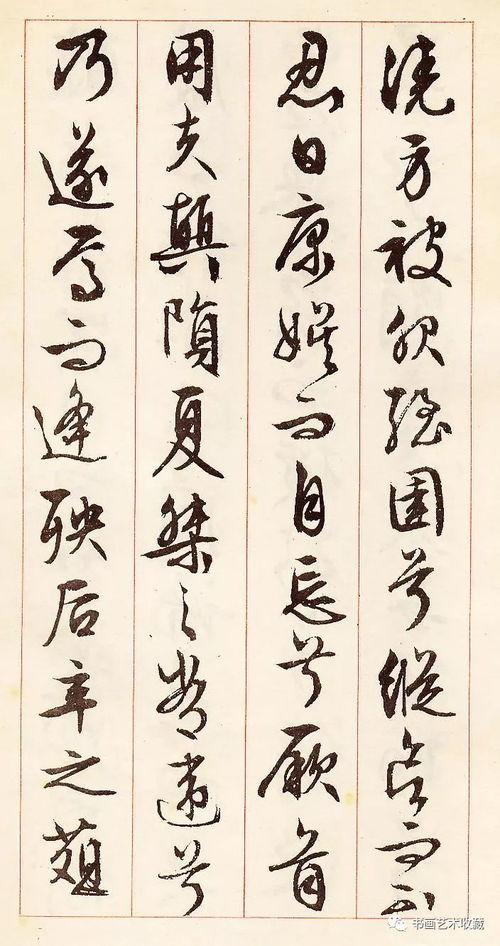 澆身被服強圉兮縱欲而不
忍日康娛而自忘兮厥首
用夫顛隕夏桀之常違兮
乃遂焉而逢殃后辛之菹
书画艺术收藏